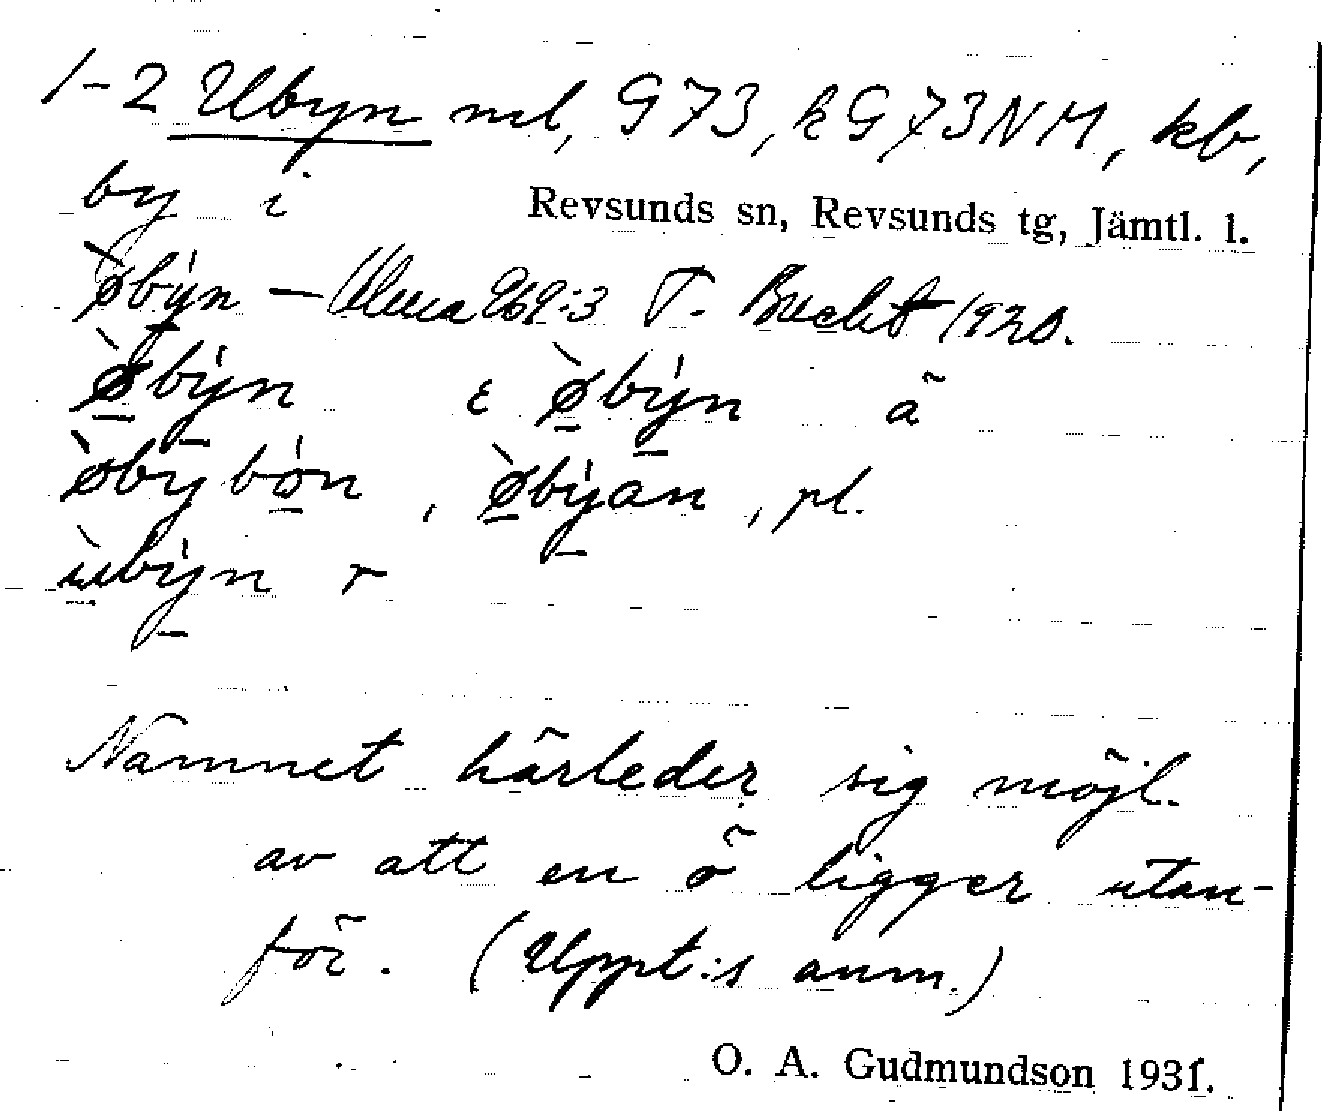 1-2 Ubyn ml, G73, kG73NM, kb,
by i Revsunds sn, Revsunds tg, Jämtl. l.
ø̀býn — Ulma 269:3 T. Bucht 1920.
ø̀býn ε ø̀býn ã
ø̀bybòn, ø̀býan, pl.
ùbýn r
Namnet härleder sig möjl.
av att en ö ligger utan-
för. (Uppt:s anm.)
O. A. Gudmundson 1931.